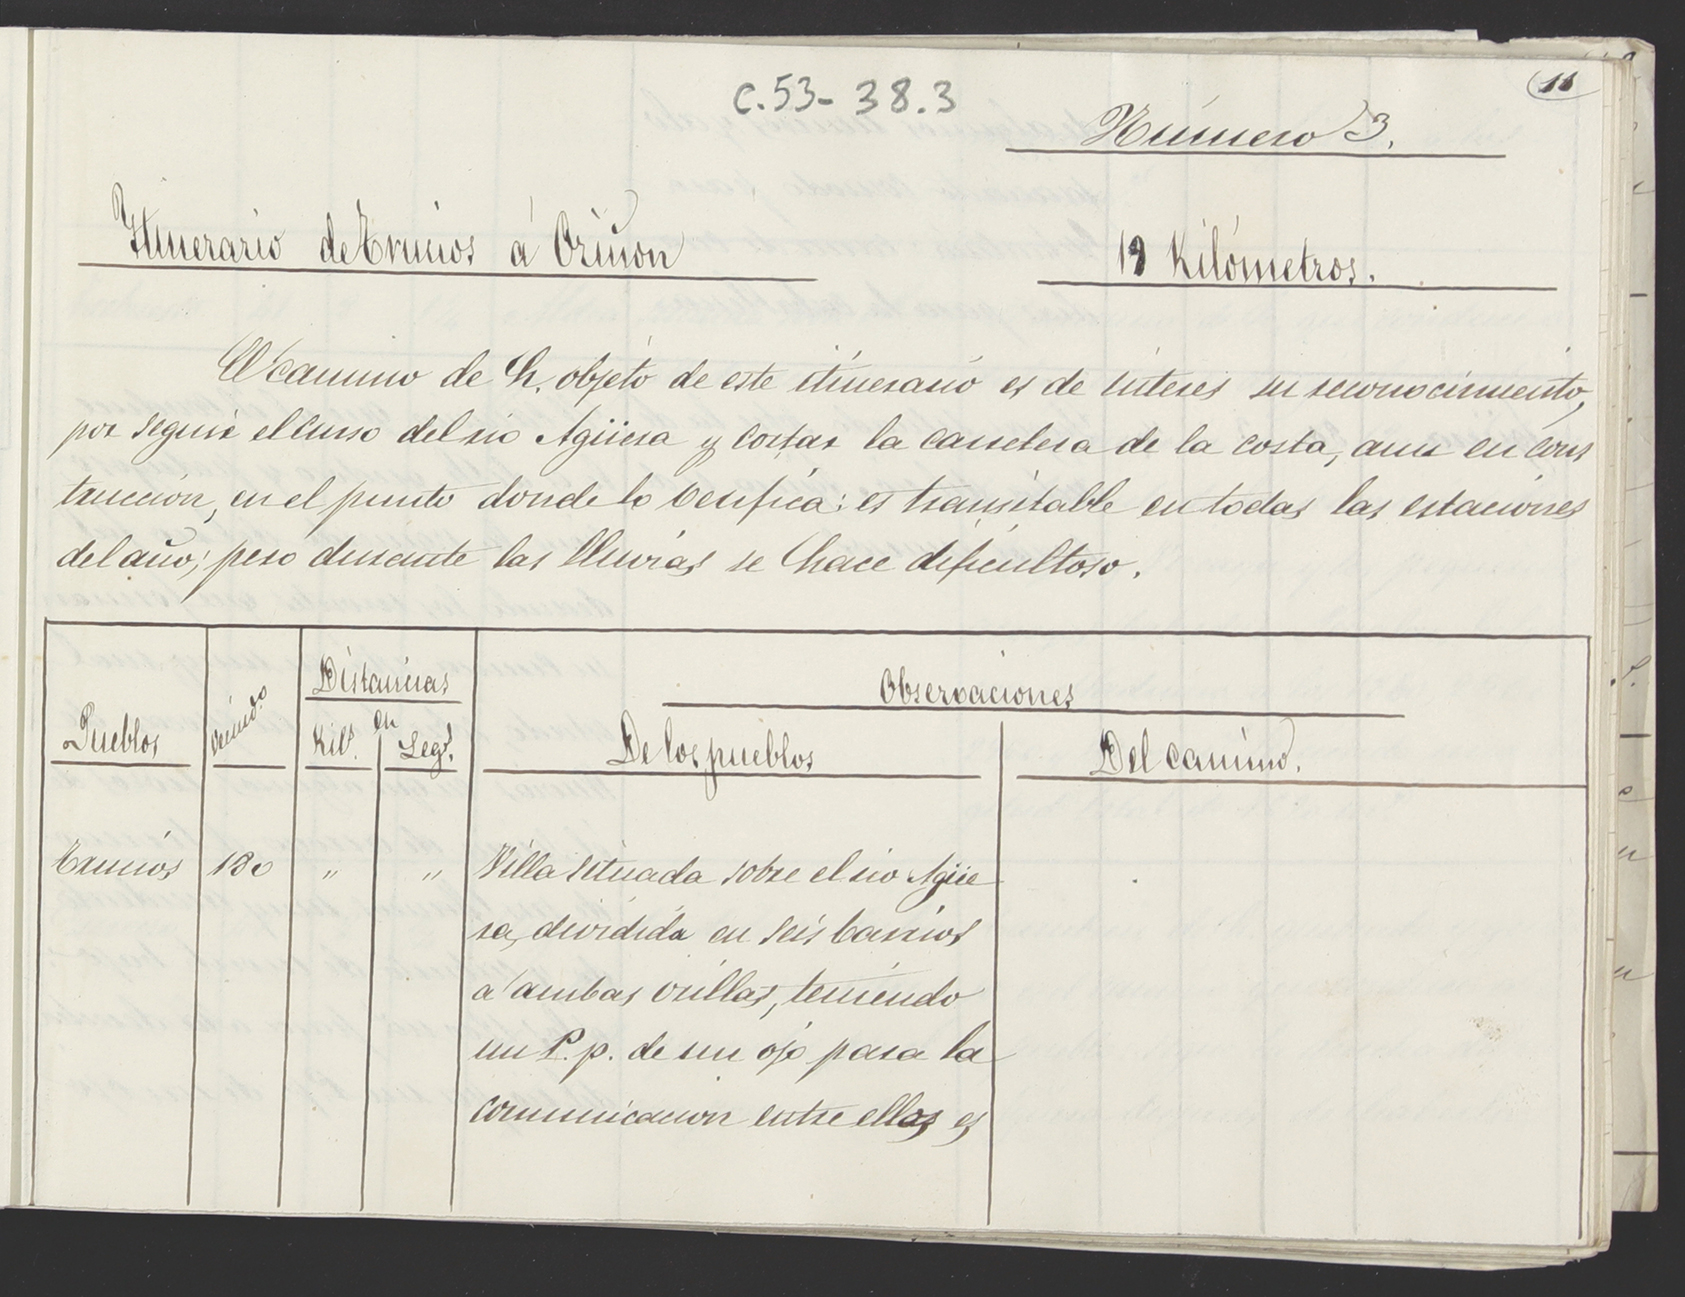 11
C.53-38.3
Número 3.
Itinerario de Trucios á Oriñon
19 Kilómetros.
El camino de h. objeto de este itinerario es de interes su reconocimiento,
por seguir el curso del rio Agüera y cortar la carretera de la costa, aun en cons
truccion, en el punto donde lo verifica: es transitable en todas las estaciones
del año; pero durante las lluvias se hace dificultoso.
Pueblos
Vecind.o
Distancias
en
Kils.
Legs.
Observaciones
De los pueblos
Del camino.
Trucios 180 " " Villa situada sobre el rio Agüe
ra, dividida en seis barrios
a ambas orillas, teniendo
un P. p. de un ojo para la
comunicacion entre ellos es